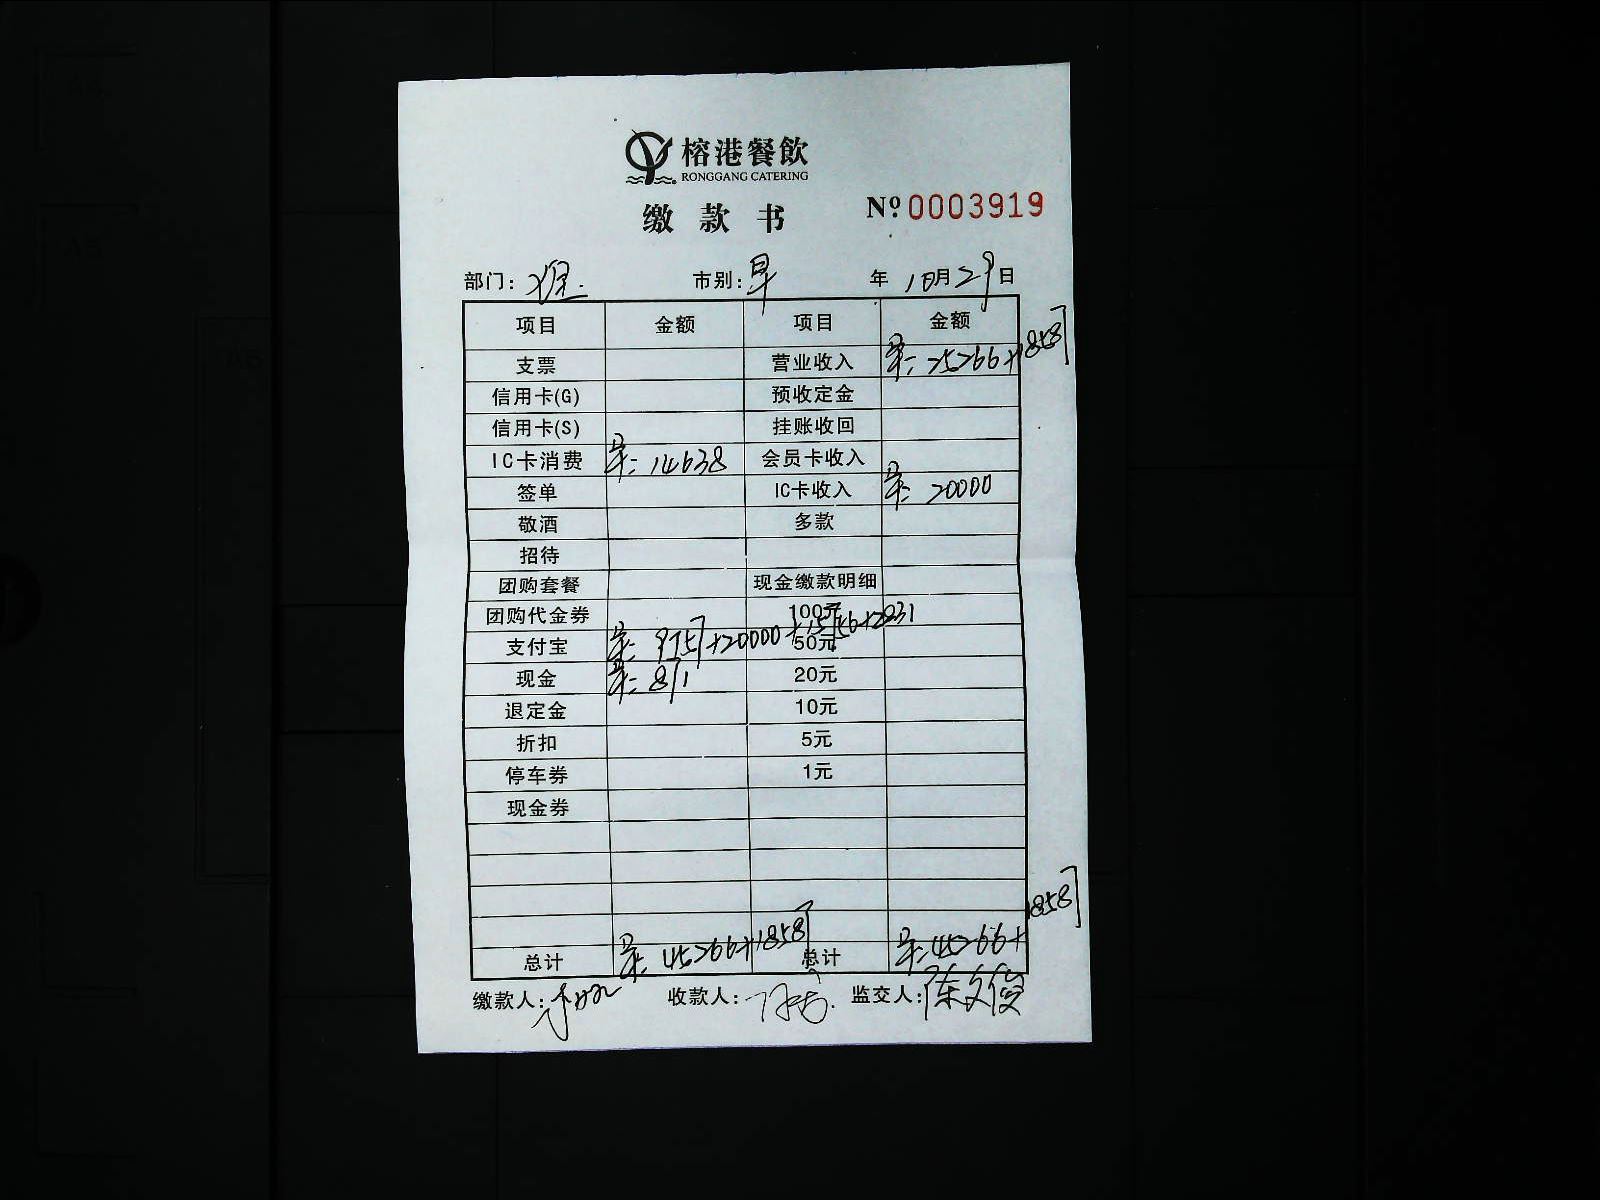 榕港餐飲
RONGGANG CATERING
缴款书 Nº 0003919
部门: 市别: 早 年 10月29日
项目 金额 项目 金额
支票 营业收入 早: 25266+1858
信用卡(G) 预收定金
信用卡(S) 挂账收回
IC卡消费 早: 14638 会员卡收入
签单 IC卡收入 早: 20000
敬酒 多款
招待
团购套餐 现金缴款明细
团购代金券 100元
支付宝 早: +20000+ 50元
现金 早: 20元
退定金 10元
折扣 5元
停车券 1元
现金券
总计 早: 45266+1858 总计 早: 45266+1858
缴款人: 收款人: 监交人: 陈文俊